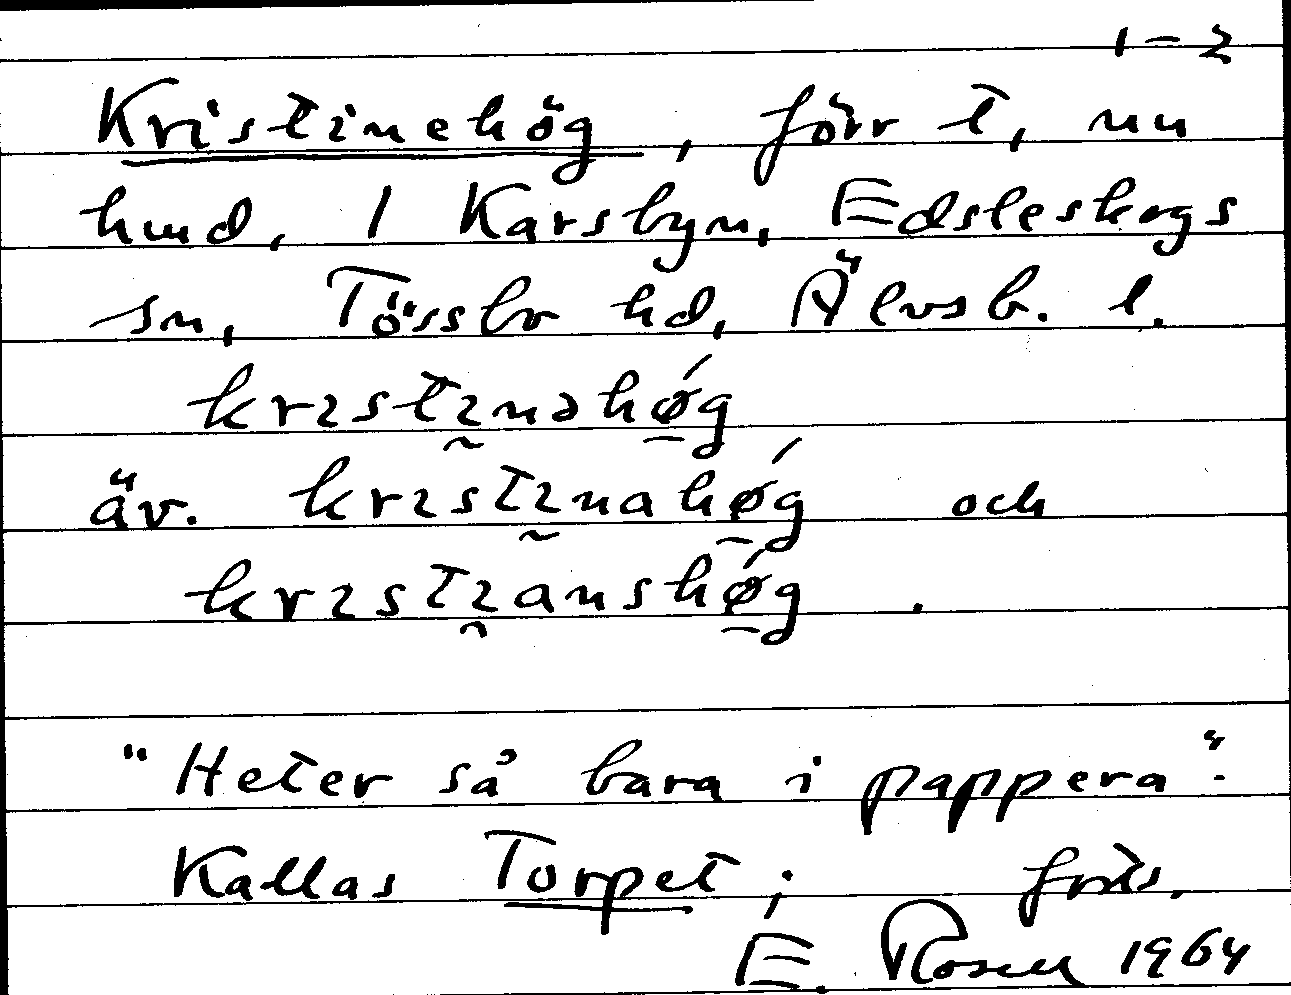 1–2
Kristinehög, förr t, nu
hmd, 1 Karsbyn, Edsleskogs
sn, Tössbo hd, Älvsb. l.
krɪstɪ̰nəhǿ̠g
äv. krɪstɪ̰nahǿ̠g och
krɪstɪ̯anshǿ̠g.
"Heter så bara i pappera".
Kallas Torpet; forts.
E. Rosell 1964